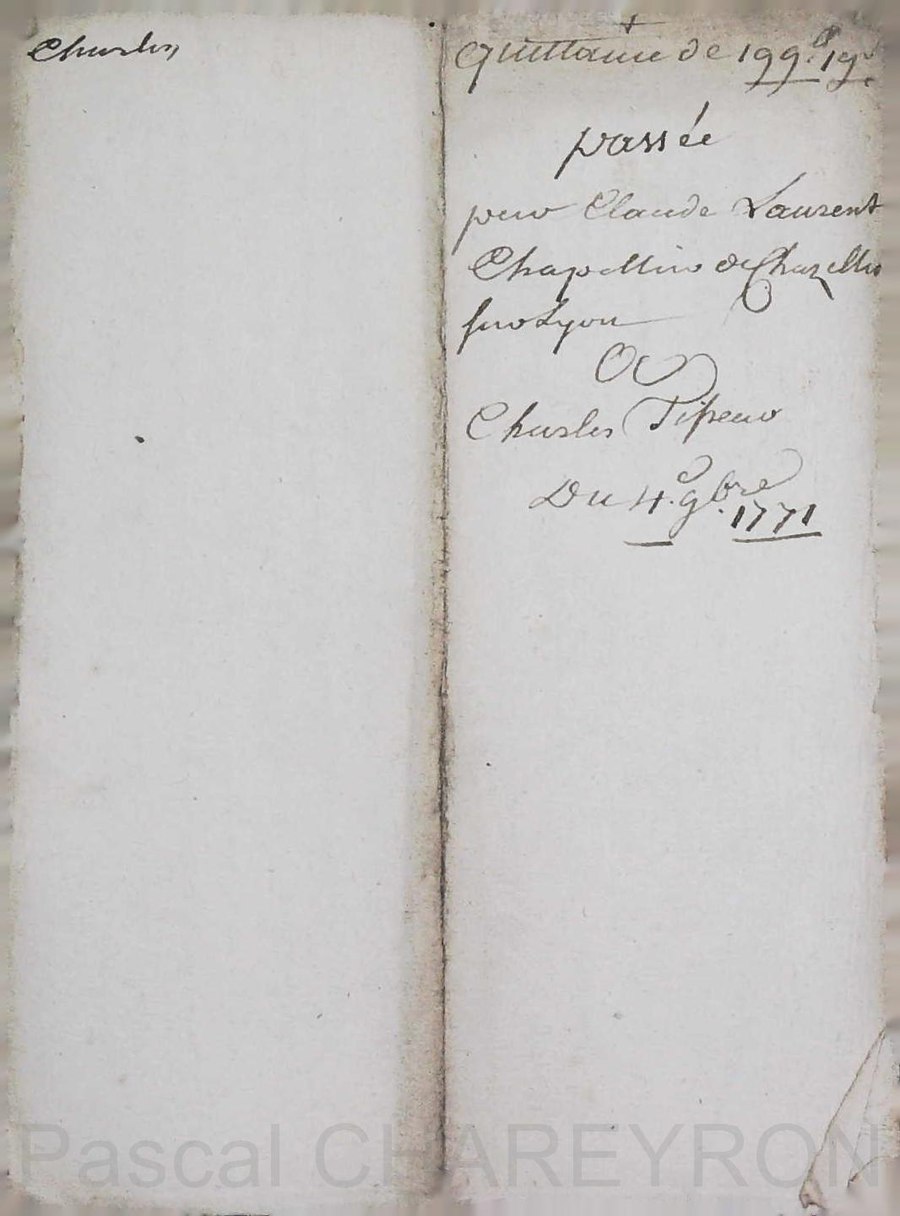 Charles
quittance de 199.# 19s
passée
par Claude Laurent
Chapellier de Chazelles
sur Lyon
A
Charles Tisseur
Du 4.e 9.bre 1771
Pascal CHAREYRON